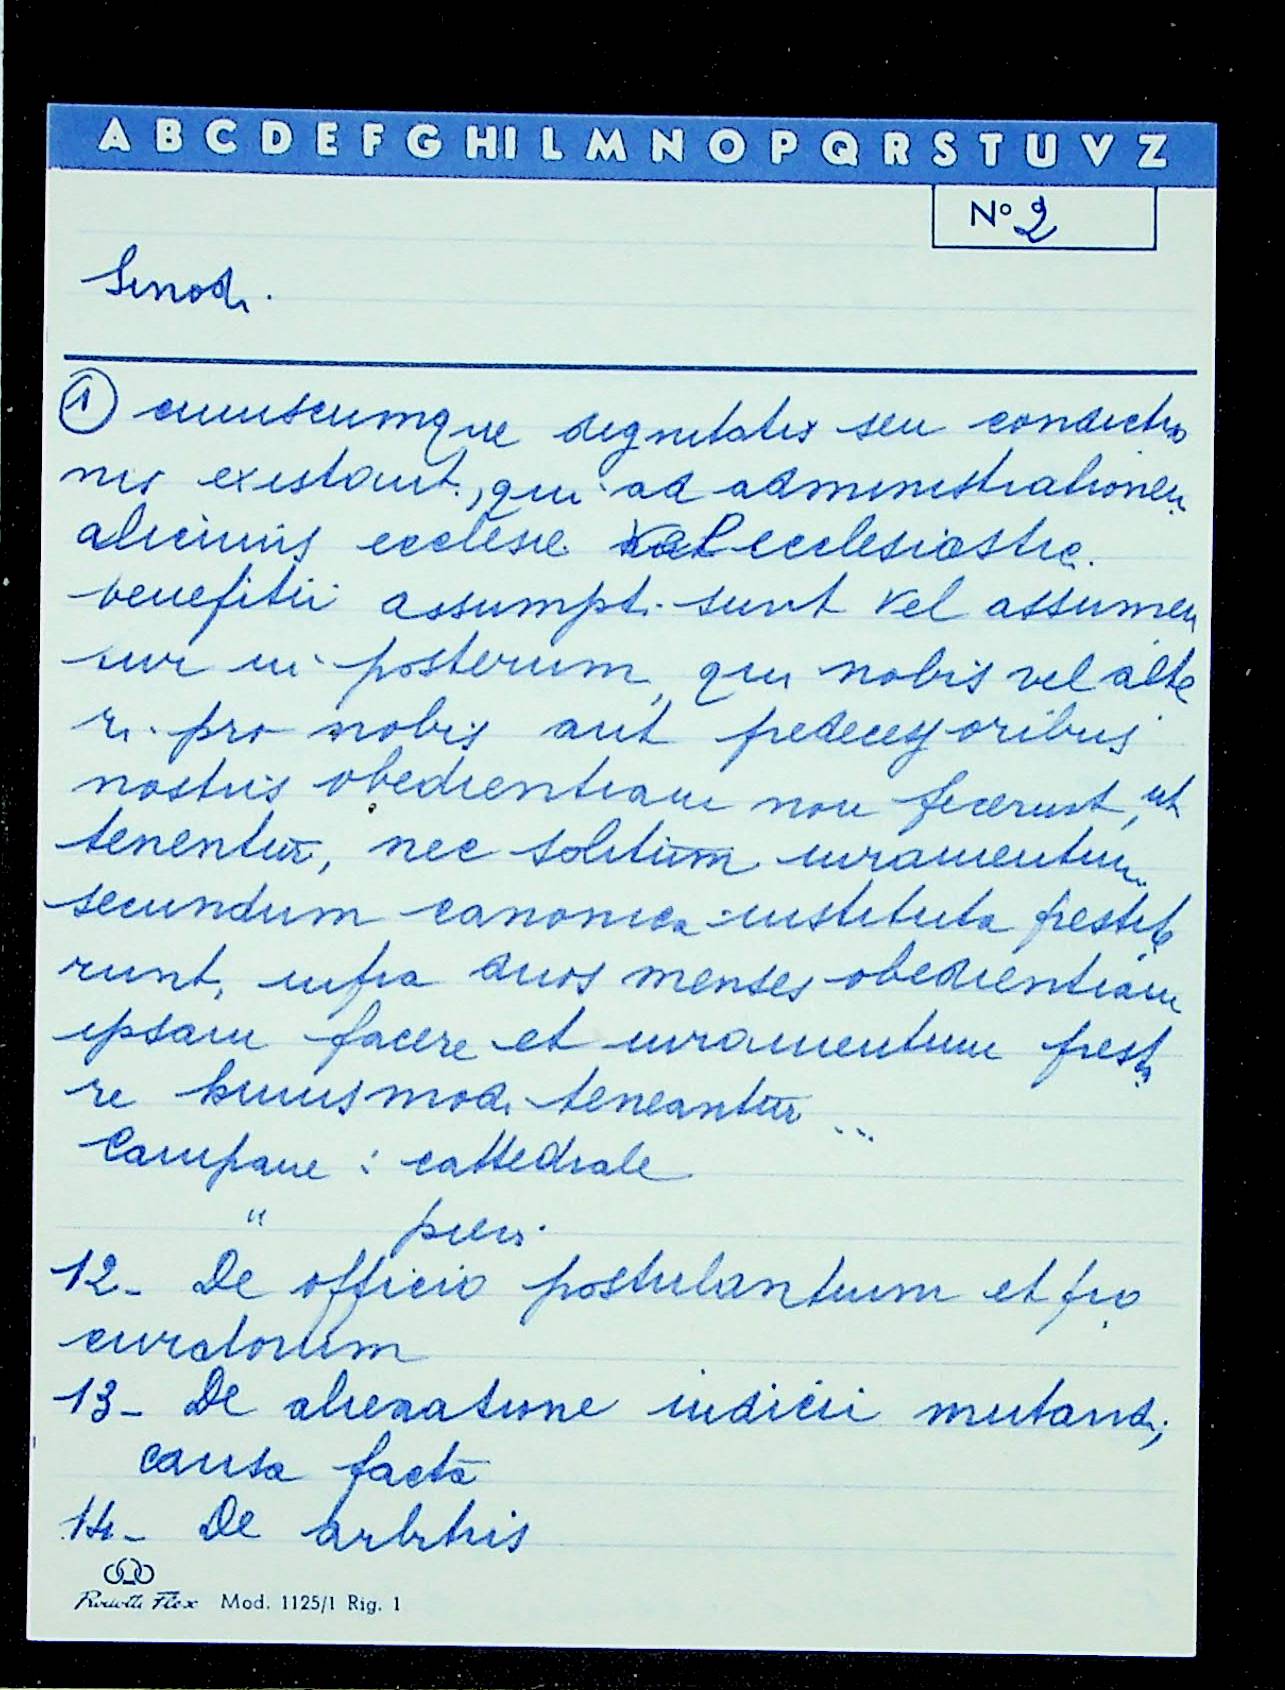 A B C D E F G H I L M N O P Q R S T U V Z
Nº 2
Sinodi.
① cuiuscumque dignitatis seu conditio
nis existant, qui ad administrationem
alicuius ecclesie vel ecclesiastici
benefitii assumpti sunt vel assumen
tur in posterum, qui nobis vel alte
ri pro nobis aut predecessoribus
nostris obedientiam non fecerunt, ut
tenentur, nec solitum iuramentum
secundum canonica instituta prestite
runt, infra duos menses obedientiam
ipsam facere et iuramentum presta
re huiusmodi teneantur ...
Campane : cattedrale
" pievi
12- De officio postulantium et pro
curatorum
13- De alienatione iudicii mutandi
causa facta
14- De arbitris
Mod. 1125/1 Rig. 1